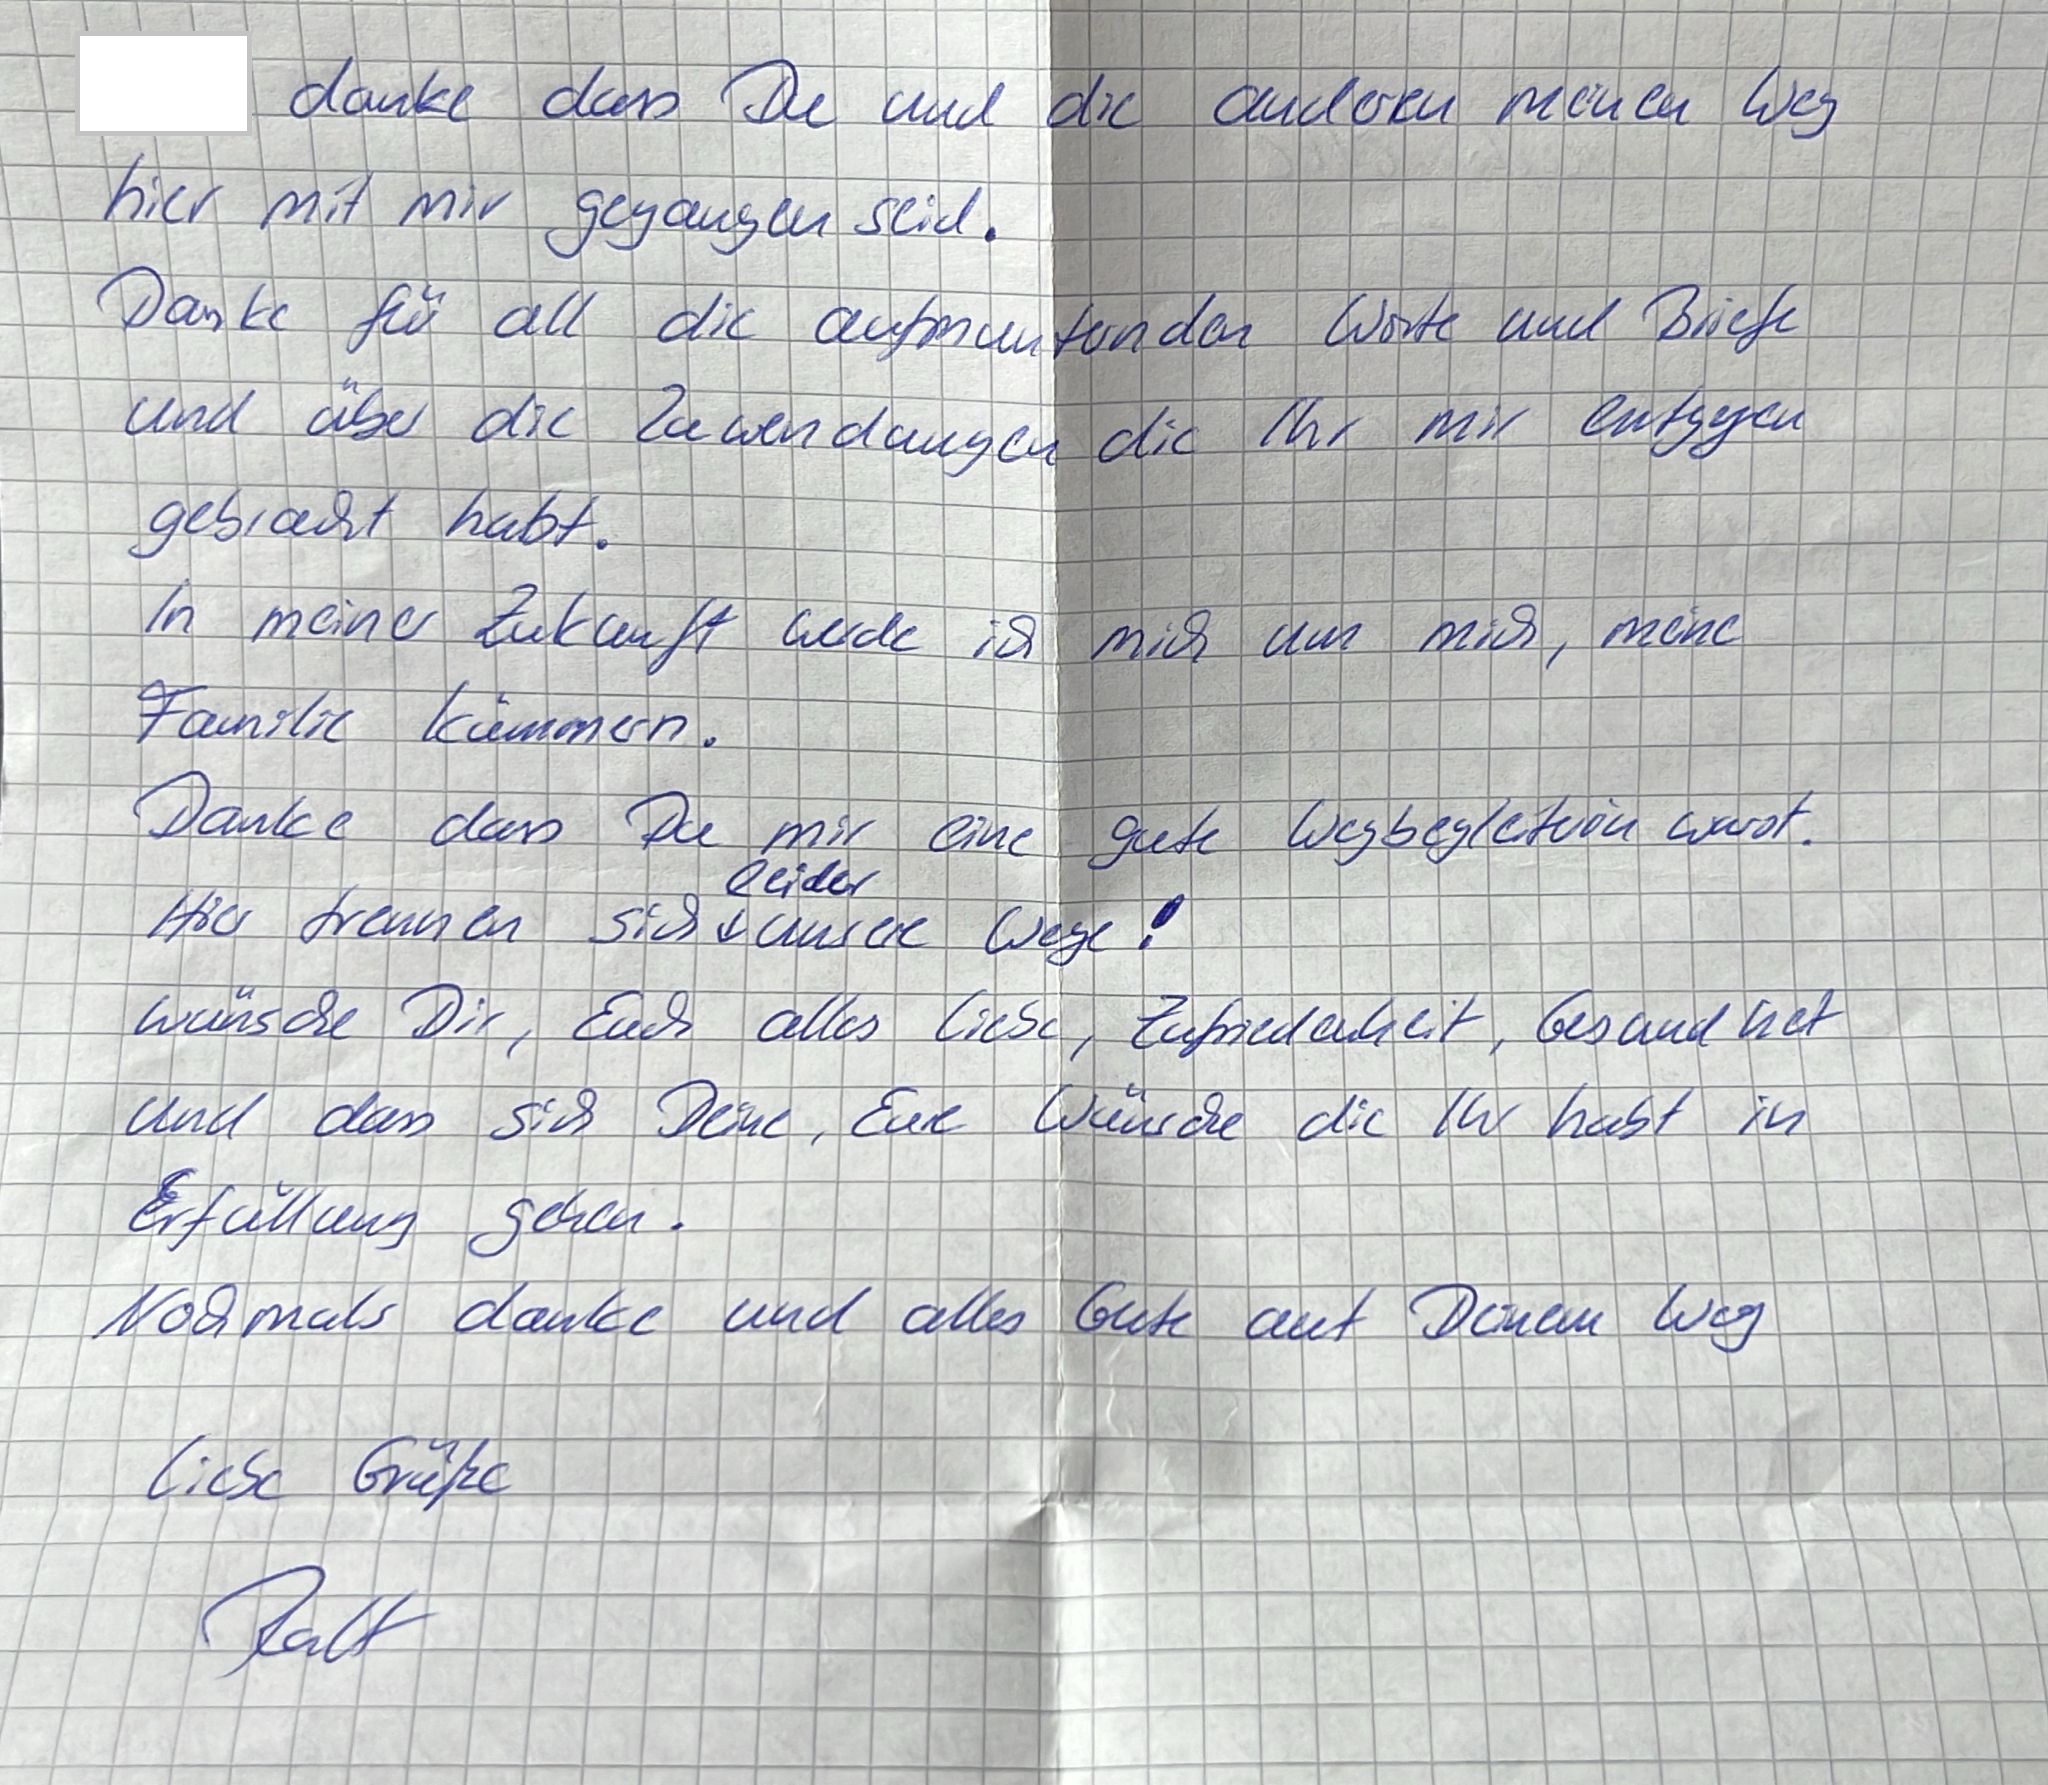 danke dass Du und die anderen meinen Weg
hier mit mir gegangen seid.
Danke für all die aufmunternden Worte und Briefe
und über die Zuwendungen die Ihr mir entgegen
gebracht habt.
In meiner Zukunft werde ich mich um mich, meine
Familie kümmern.
Danke dass Du mir eine gute Wegbegleterin warst.
leider
Hier trennen sich ↓ unsere Wege!
wünsche Dir, Euch alles liebe, Zufriedenheit, Gesundheit
und dass sich Deine, Eure Wünsche die Ihr habt in
Erfüllung gehen.
Nochmals danke und alles Gute auf Deinem Weg
liebe Grüße
Ralf